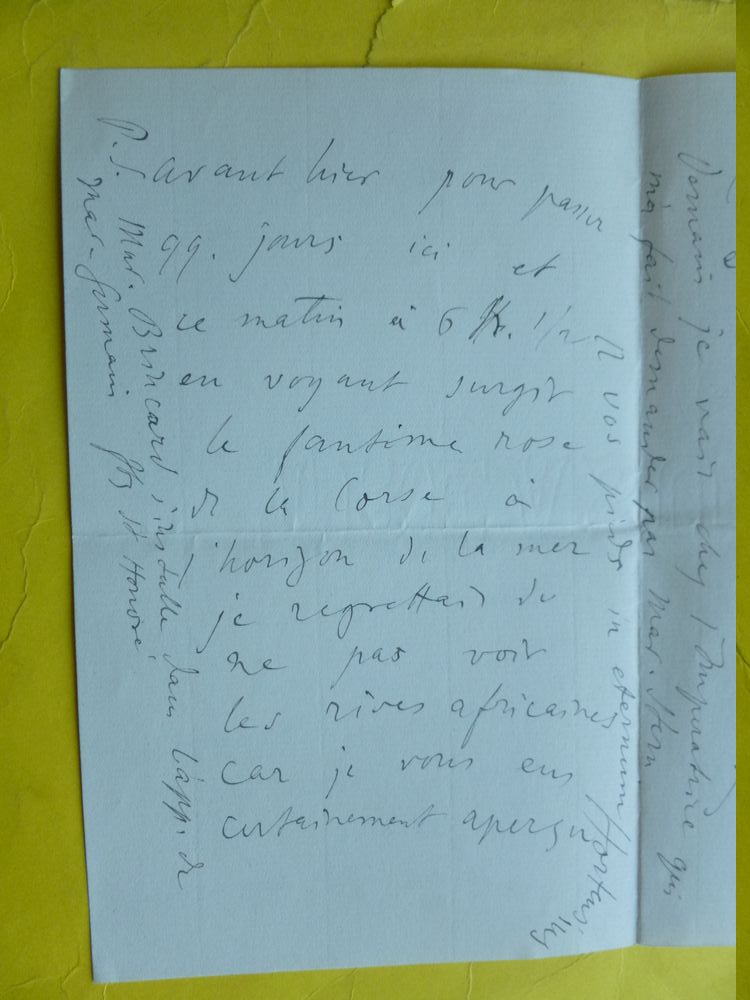 avant hier pour passer
99. jours ici et
ce matin à 6 h. 1/2
en voyant surgir
le fantôme rose
de la Corse à
l'horizon de la mer
je regrettais de
ne pas voir
les rives africaines
car je vous eus
certainement aperçu
vos pieds in eternum
P.S. Mar. Brincard s'installe dans l'app. de
Mar. Germain fbg St Honoré
Demain je vais chez l'Impératrice qui
m'a fait demander par Mar. Stern